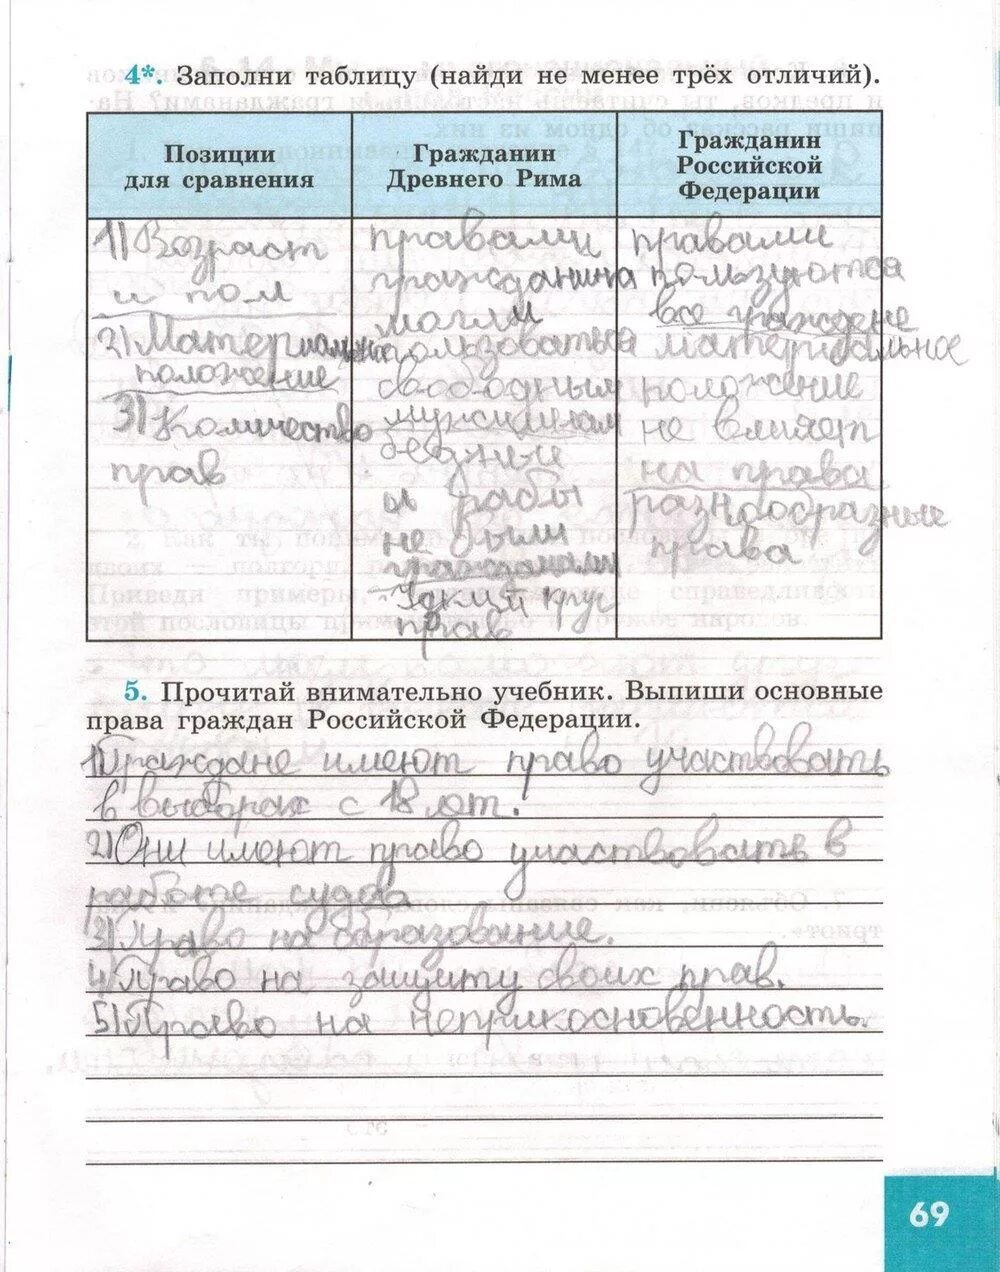 4*. Заполни таблицу (найди не менее трёх отличий).
Позиции
для сравнения
Гражданин
Древнего Рима
Гражданин
Российской
Федерации
1) Возраст
и пол
2) Материальное
положение
3) Количество
прав
правами
гражданина
могли
пользоваться
свободным
мужчинам
бедные
и рабы
не были
гражданами
Узкий круг
прав
правами
пользуются
все граждане
материальное
положение
не влияет
на права
разнообразные
права
5. Прочитай внимательно учебник. Выпиши основные
права граждан Российской Федерации.
1) Граждане имеют право участвовать
в выборах с 18 лет.
2) Они имеют право участвовать в
работе суда
3) Право на образование.
4) Право на защиту своих прав.
5) Право на неприкосновенность.
69